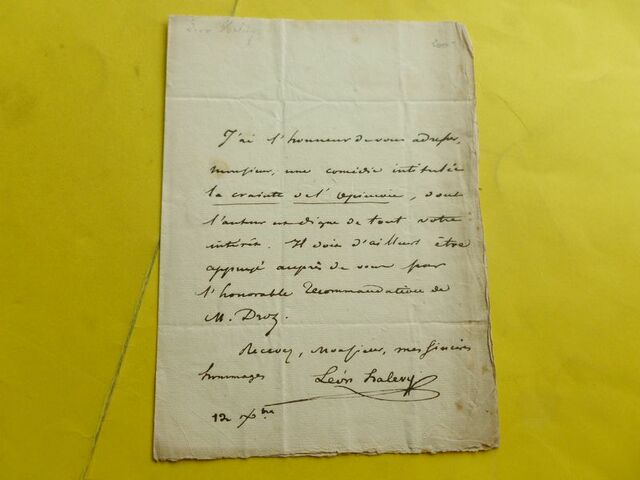 Léon Halévy
J'ai l'honneur de vous adresser,
monsieur, une comédie intitulée
la crainte de l'Opinion, dont
l'auteur est digne de tout votre
intérêt. Il doit d'ailleurs être
appuyé auprès de vous par
l'honorable recommandation de
M. Droz.
Recevez, Monsieur, mes sincères
hommages Léon halevy
12 Xbre